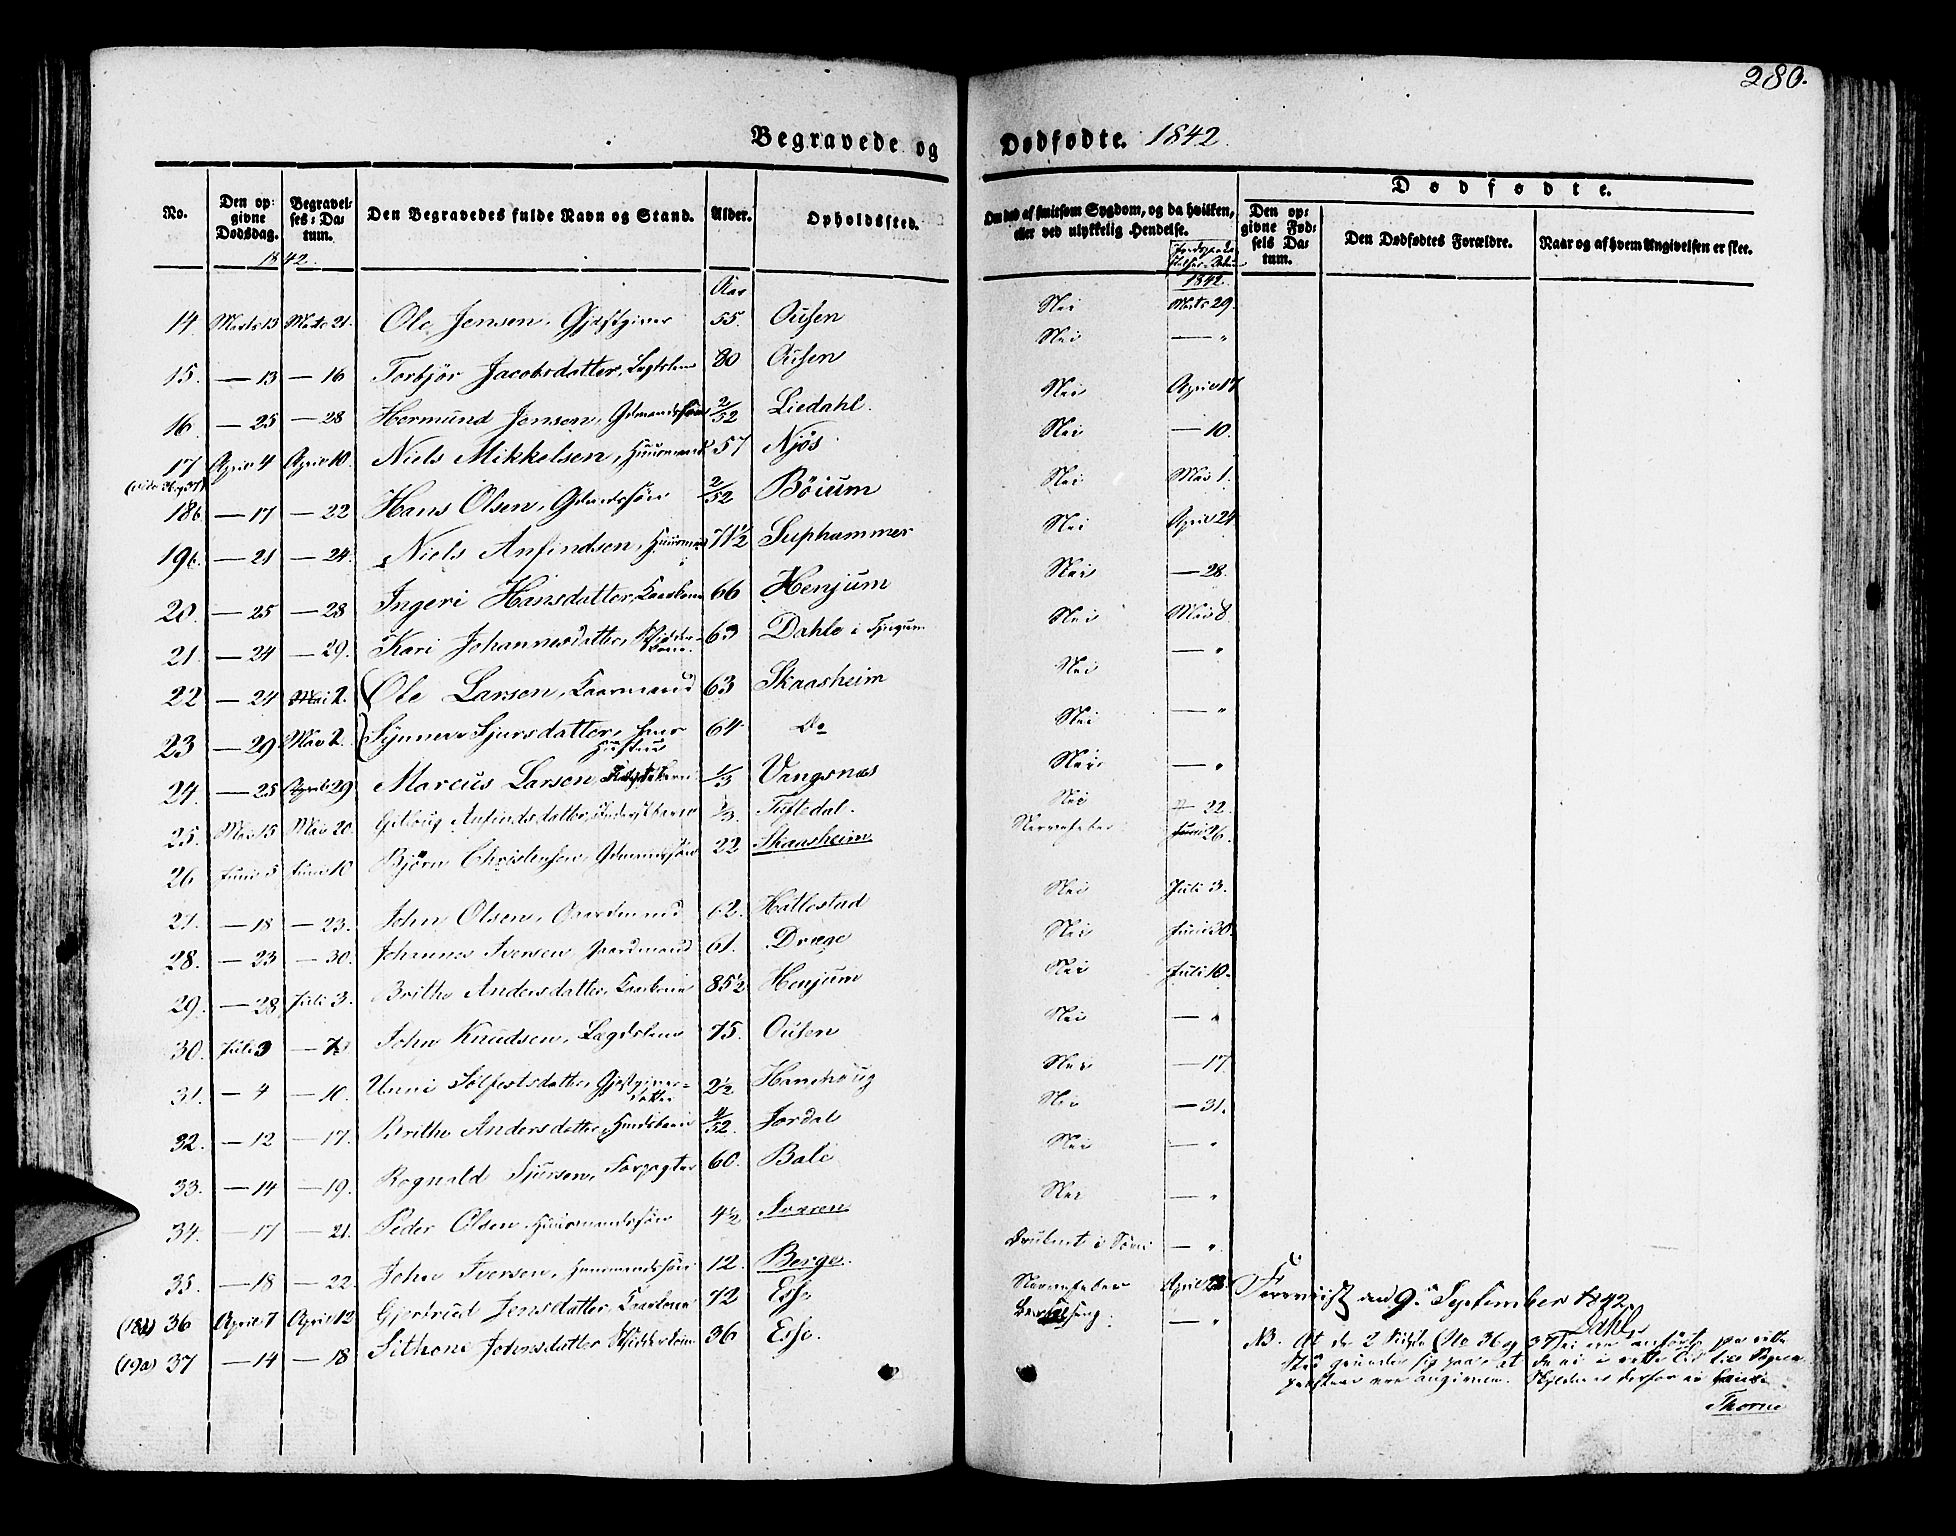 280.
Begravede og Dødfødte. 1842.
No.
Den opgivne Dødsdag.
Begravelses-Datum.
Den Begravedes fulde Navn og Stand.
Alder.
Opholdssted.
Om død af smitsom Sygdom, og da hvilken, eller ved ulykkelig Hendelse.
Dødfødte.
Den opgivne Fødsels Datum.
Den Dødfødtes Forældre.
Naar og af hvem Angivelsen er skee.
1842.
Aar
1842.
14. Marts 13 Marts 21. Ole Jensen, Gjæstgiver 55. Ousen Nei Marts 29.
15. — 13 — 16 Torbjør Jacobsdatter, Lægdslem 80 Ousen Nei — "
16. — 25 — 28 Hermund Jensen, Gdmandssøn 2/52 Liedahl. Nei April 17
17 April 4 April 10. Niels Mikkelsen, Huusmand 57 Njøs Nei — 10.
(vide 36 og 37)
18b. — 17 — 22 Hans Olsen, Gdmandssøn 2/52 Bøium Nei Mai 1.
19b. — 21 — 24. Niels Anfindsen, Huusmand 71 1/2 Suphammer Nei April 24
20. — 25 — 28 Ingeri Hansdatter, Kaarkone 66 Henjum Nei — 28.
21. — 24 — 29. Kari Johannesdatter, 63 Dahle i Nei Mai 8.
22 — 24 Mai 2. Ole Larsen, Kaarmand 63 Skaasheim Nei — "
23 — 29 Mai 2. Synneve Sjursdatter, hans Hustru 64 Do Nei — "
24. — 25 April 29 Marcus Larsen, 1/3 Vangsnæs Nei — "
25. Mai 15 Mai 20. Anfindsdatter, 1/3. Tuftedal. Nei — 22.
26 Juni 5 Juni 10 Bjørn Christensen, Gdmandssøn 22 Skaasheim Nervefeber Juni 26.
27. — 18 — 23. John Olsen, Gaardmand 62. Hallestad Nei Juli 3.
28. — 23 — 30. Johannes Iversen, Gaardmand 61. Dræge Nei Juni 30.
29. — 28 Juli 3. Brithe Andersdatter, Kaarkone 85 1/2 Henjum Nei Juli 10.
30. Juli 3 — John Knudsen, Lægdslem 75. Ousen Nei — "
31. — 4 — 10. Unni Sølfestsdatter, Gjæstgiverdatter 2 1/2 Hamhoug Nei — 17.
32. — 12 — 17. Brithe Andersdatter, Huusbarn 4/52. Jordal Nei — 31.
33. — 14 — 19. Rognald Sjursen, Forpagter 60. Bale Nei — "
34. — 17 — 21. Peder Olsen, Huusmandssøn 4 1/2 Nei — "
35. — 18 — 22. John Iversen, Huusmandssøn 12. Berge. Druknet i Søen — "
(18a) 36 April 7 April 12 Gjertrud Jensdatter, Kaarkone 72 Esse Nervefeber April 23.
(19a) 37 — 14 — 18 Sithone Johnsdatter 36 Esse. — "
den 9de September 1842.
Dahl
NB. At de 2 sidste (No 36 og 37) ei ere anførte paa rette
Sted grunder sig paa, at de ei i rette Tid
vare angivne. Skylden er derfor ei
Thorne